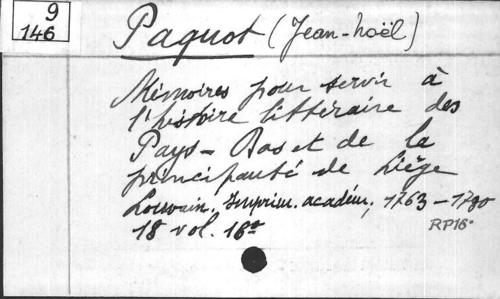 9
146
Paquot (Jean-Noël)
Mémoires pour servir à
l'histoire littéraire des
Pays-Bas et de la
principauté de Liège
Louvain. Imprim. académ., 1763-1770
18 vol. 18°
RP18°